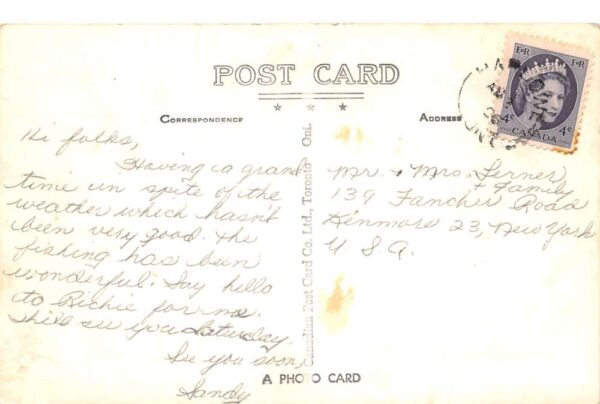 POST CARD
CORRESPONDENCE
ADDRESS
E R
E R
4¢
4¢
CANADA
Hi folks,
Having a grand
time in spite of the
weather which hasn't
been very good. The
fishing has been
wonderful. Say hello
to Richie for me.
see you Saturday.
See you soon,
Sandy
Mr. & Mrs. Lerner
& Family
139 Fancher Road
Kenmore 23, New York
U.S.A.
Canadian Post Card Co. Ltd., Toronto Ont.
A PHOTO CARD